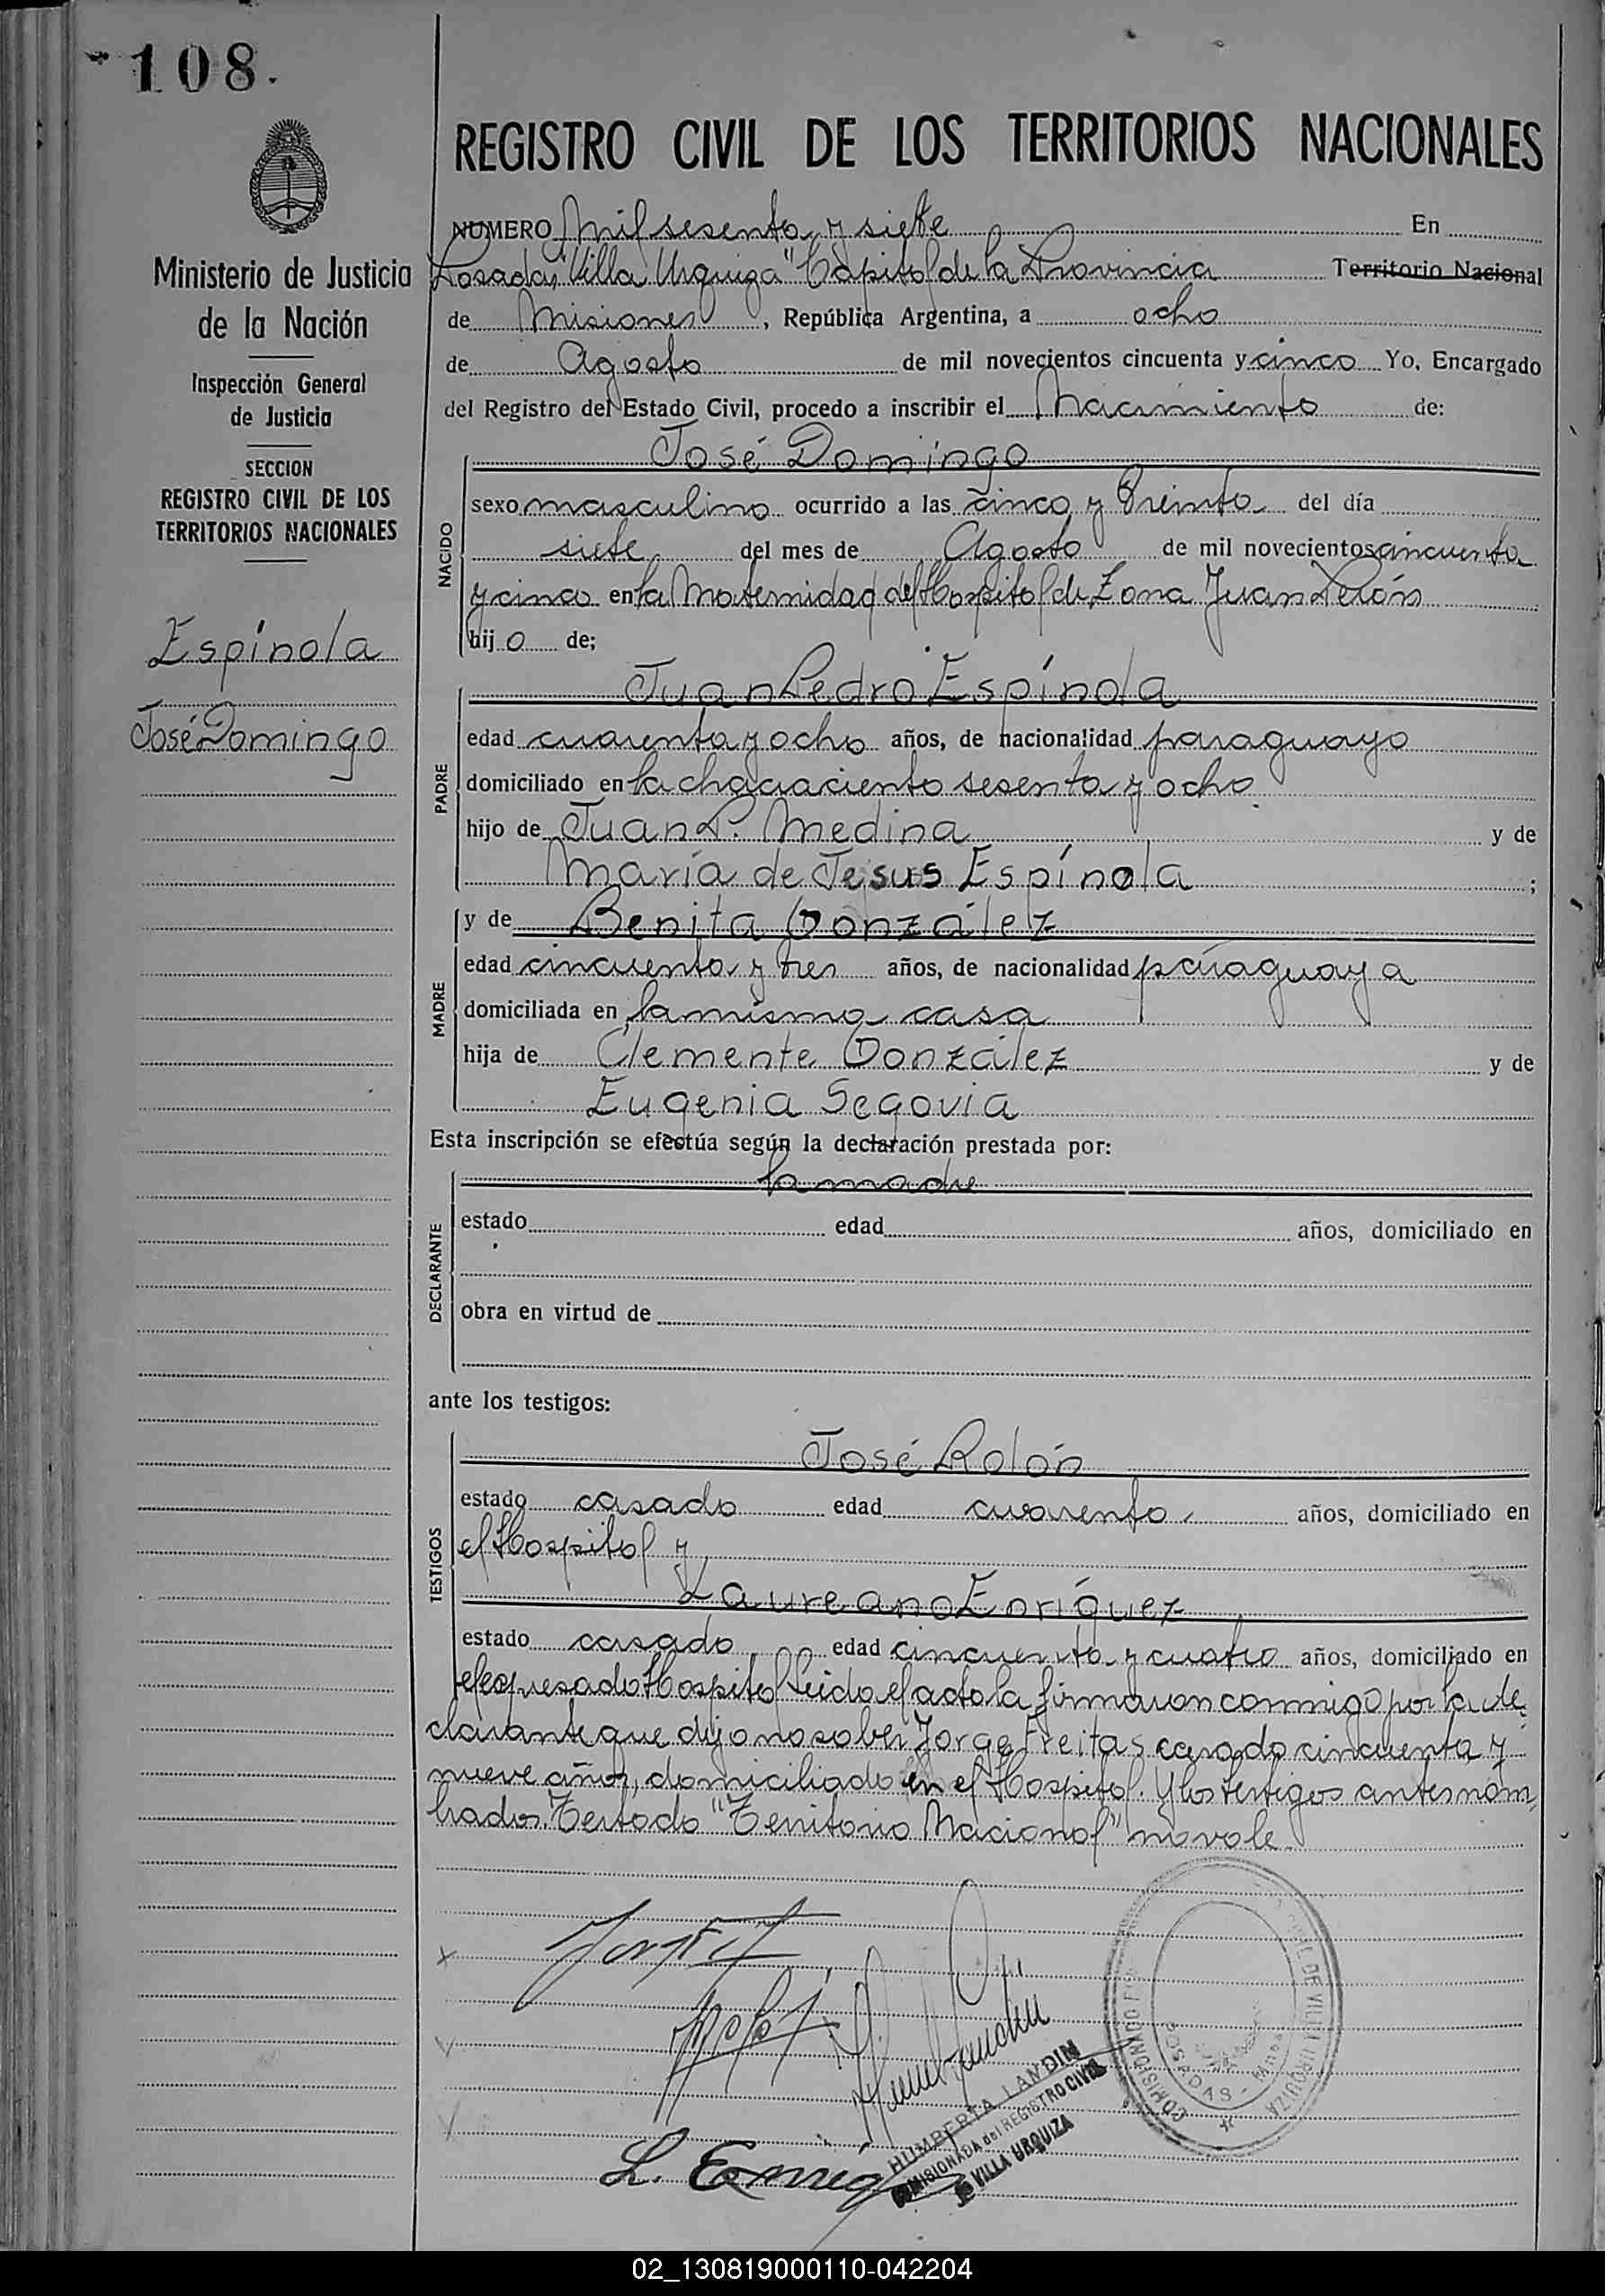 108.
Ministerio de Justicia
de la Nación
Inspección General
de Justicia
SECCION
REGISTRO CIVIL DE LOS
TERRITORIOS NACIONALES
Espínola
José Domingo
REGISTRO CIVIL DE LOS TERRITORIOS NACIONALES
NUMERO Mil sesenta y siete En
Posadas, "Villa Urquiza" Capital de la Provincia Territorio Nacional
de Misiones, República Argentina, a ocho
de Agosto de mil novecientos cincuenta y cinco Yo, Encargado
del Registro del Estado Civil, procedo a inscribir el Nacimiento de:
José Domingo
NACIDO
sexo masculino ocurrido a las cinco y treinta del día
siete del mes de Agosto de mil novecientos cincuenta
y cinco en la Maternidad del Hospital de Zona Juan Perón
hijo de;
Juan Pedro Espínola
PADRE
edad cuarenta y ocho años, de nacionalidad paraguayo
domiciliado en la chacra ciento sesenta y ocho
hijo de Juan P. Medina y de
María de Jesus Espínola ;
y de Benita González
MADRE
edad cincuenta y tres años, de nacionalidad paraguaya
domiciliada en la misma casa
hija de Clemente González y de
Eugenia Segovia
Esta inscripción se efectúa según la declaración prestada por:
la madre
DECLARANTE
estado edad años, domiciliado en
obra en virtud de
ante los testigos:
José Rolón
TESTIGOS
estado casado edad cuarenta años, domiciliado en
el Hospital y
Laureano Enríquez
estado casado edad cincuenta y cuatro años, domiciliado en
el expresado Hospital Leido el acta la firmaron conmigo por la de
clarante que dijo no saber Jorge Freitas casado cincuenta y
nueve años, domiciliado en el Hospital. Y los testigos antes nom
brados. Testado "Territorio Nacional" no vale.
L. Enríq
HUMBERTA LANDIN
COMISIONADA del REGISTRO CIVIL
de VILLA URQUIZA
02_130819000110-042204